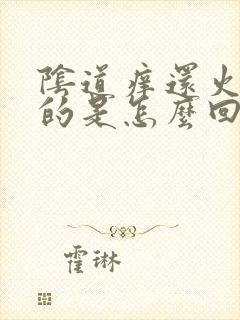 陰道痒還火
的是怎麼回
霍琳